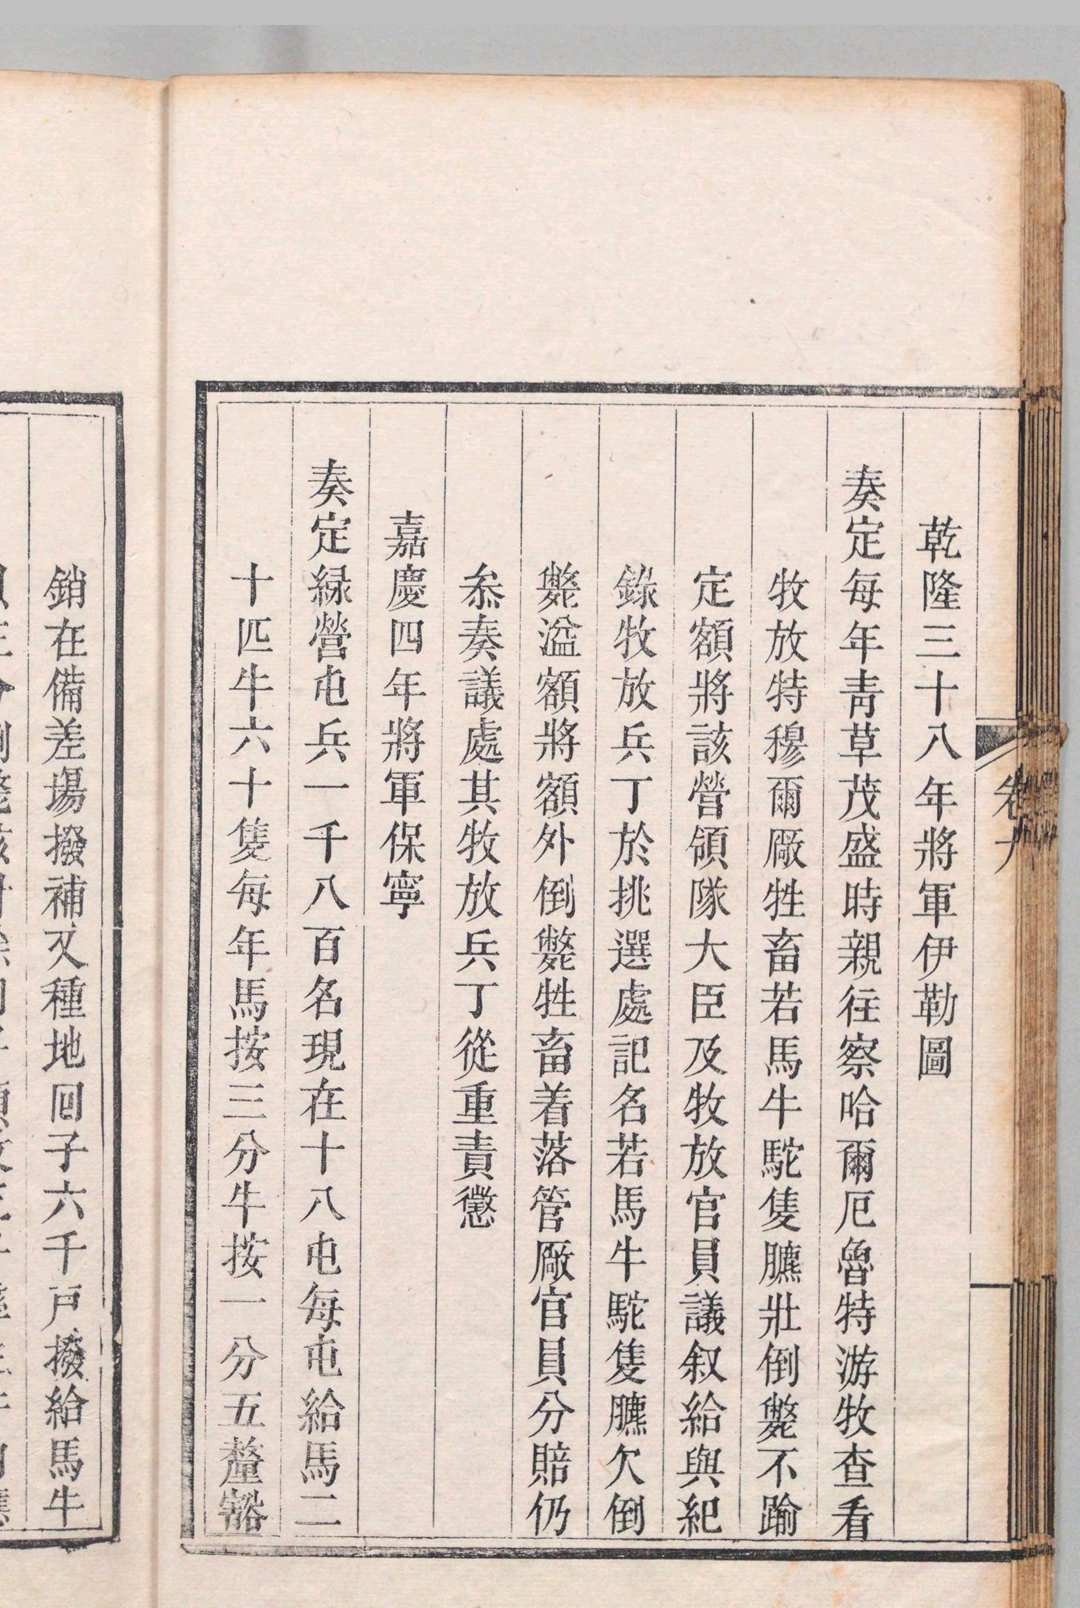 卷九
乾隆三十八年將軍伊勒圖
奏定每年青草茂盛時親往察哈爾厄魯特游牧查看
牧放特穆爾厰牲畜若馬牛駝隻臕壯倒斃不踰
定額將該營領隊大臣及牧放官員議叙給與紀
錄牧放兵丁於挑選處記名若馬牛駝隻臕欠倒
斃溢額將額外倒斃牲畜着落管厰官員分賠仍
叅奏議處其牧放兵丁從重責懲
嘉慶四年將軍保寧
奏定緑營屯兵一千八百名現在十八屯每屯給馬二
十匹牛六十隻每年馬按三分牛按一分五釐豁
銷在備差塲撥補又種地回子六千戸撥給馬牛